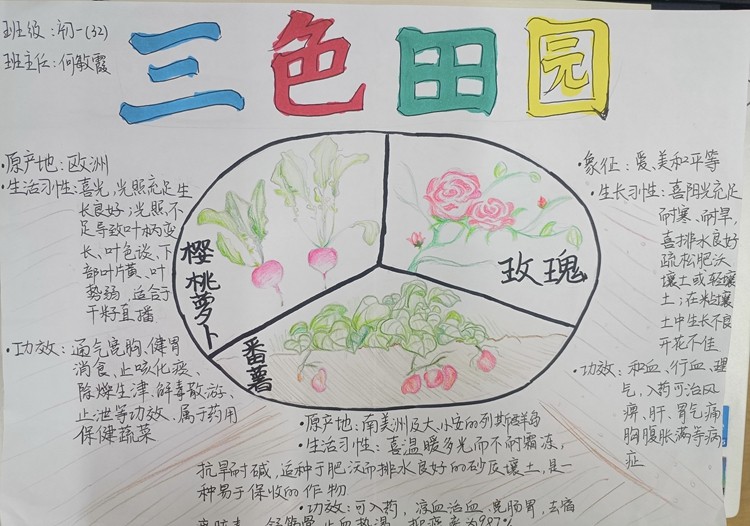 班级：初一(32)
班主任：何敏霞
三色田园
·原产地：欧洲
·生活习性：喜光，光照充足生
长良好；光照不
足导致叶柄变
长、叶色淡、下
部叶片黄、叶
势弱，适合于
干籽直播
·功效：通气宽胸、健胃
消食、止咳化痰、
除燥生津、解毒散
止泄等功效、属于药用
保健蔬菜
樱桃萝卜
玫瑰
番薯
·象征：爱、美和平等
·生长习性：喜阳光充足
耐寒、耐旱，
喜排水良好
疏松肥沃
壤土或轻壤
土；在粘壤
土中生长不良
开花不佳
·功效：和血、行血、理
气，入药可治风
痹、肝、胃气痛
胸腹胀满等病
症
·原产地：南美洲及大、小安的列斯群岛
·生活习性：喜温暖多光而不耐霜冻，
抗旱耐碱，适种于肥沃而排水良好的砂质壤土，是一
种易于保收的作物
·功效：可入药，凉血活血、宽肠胃、去